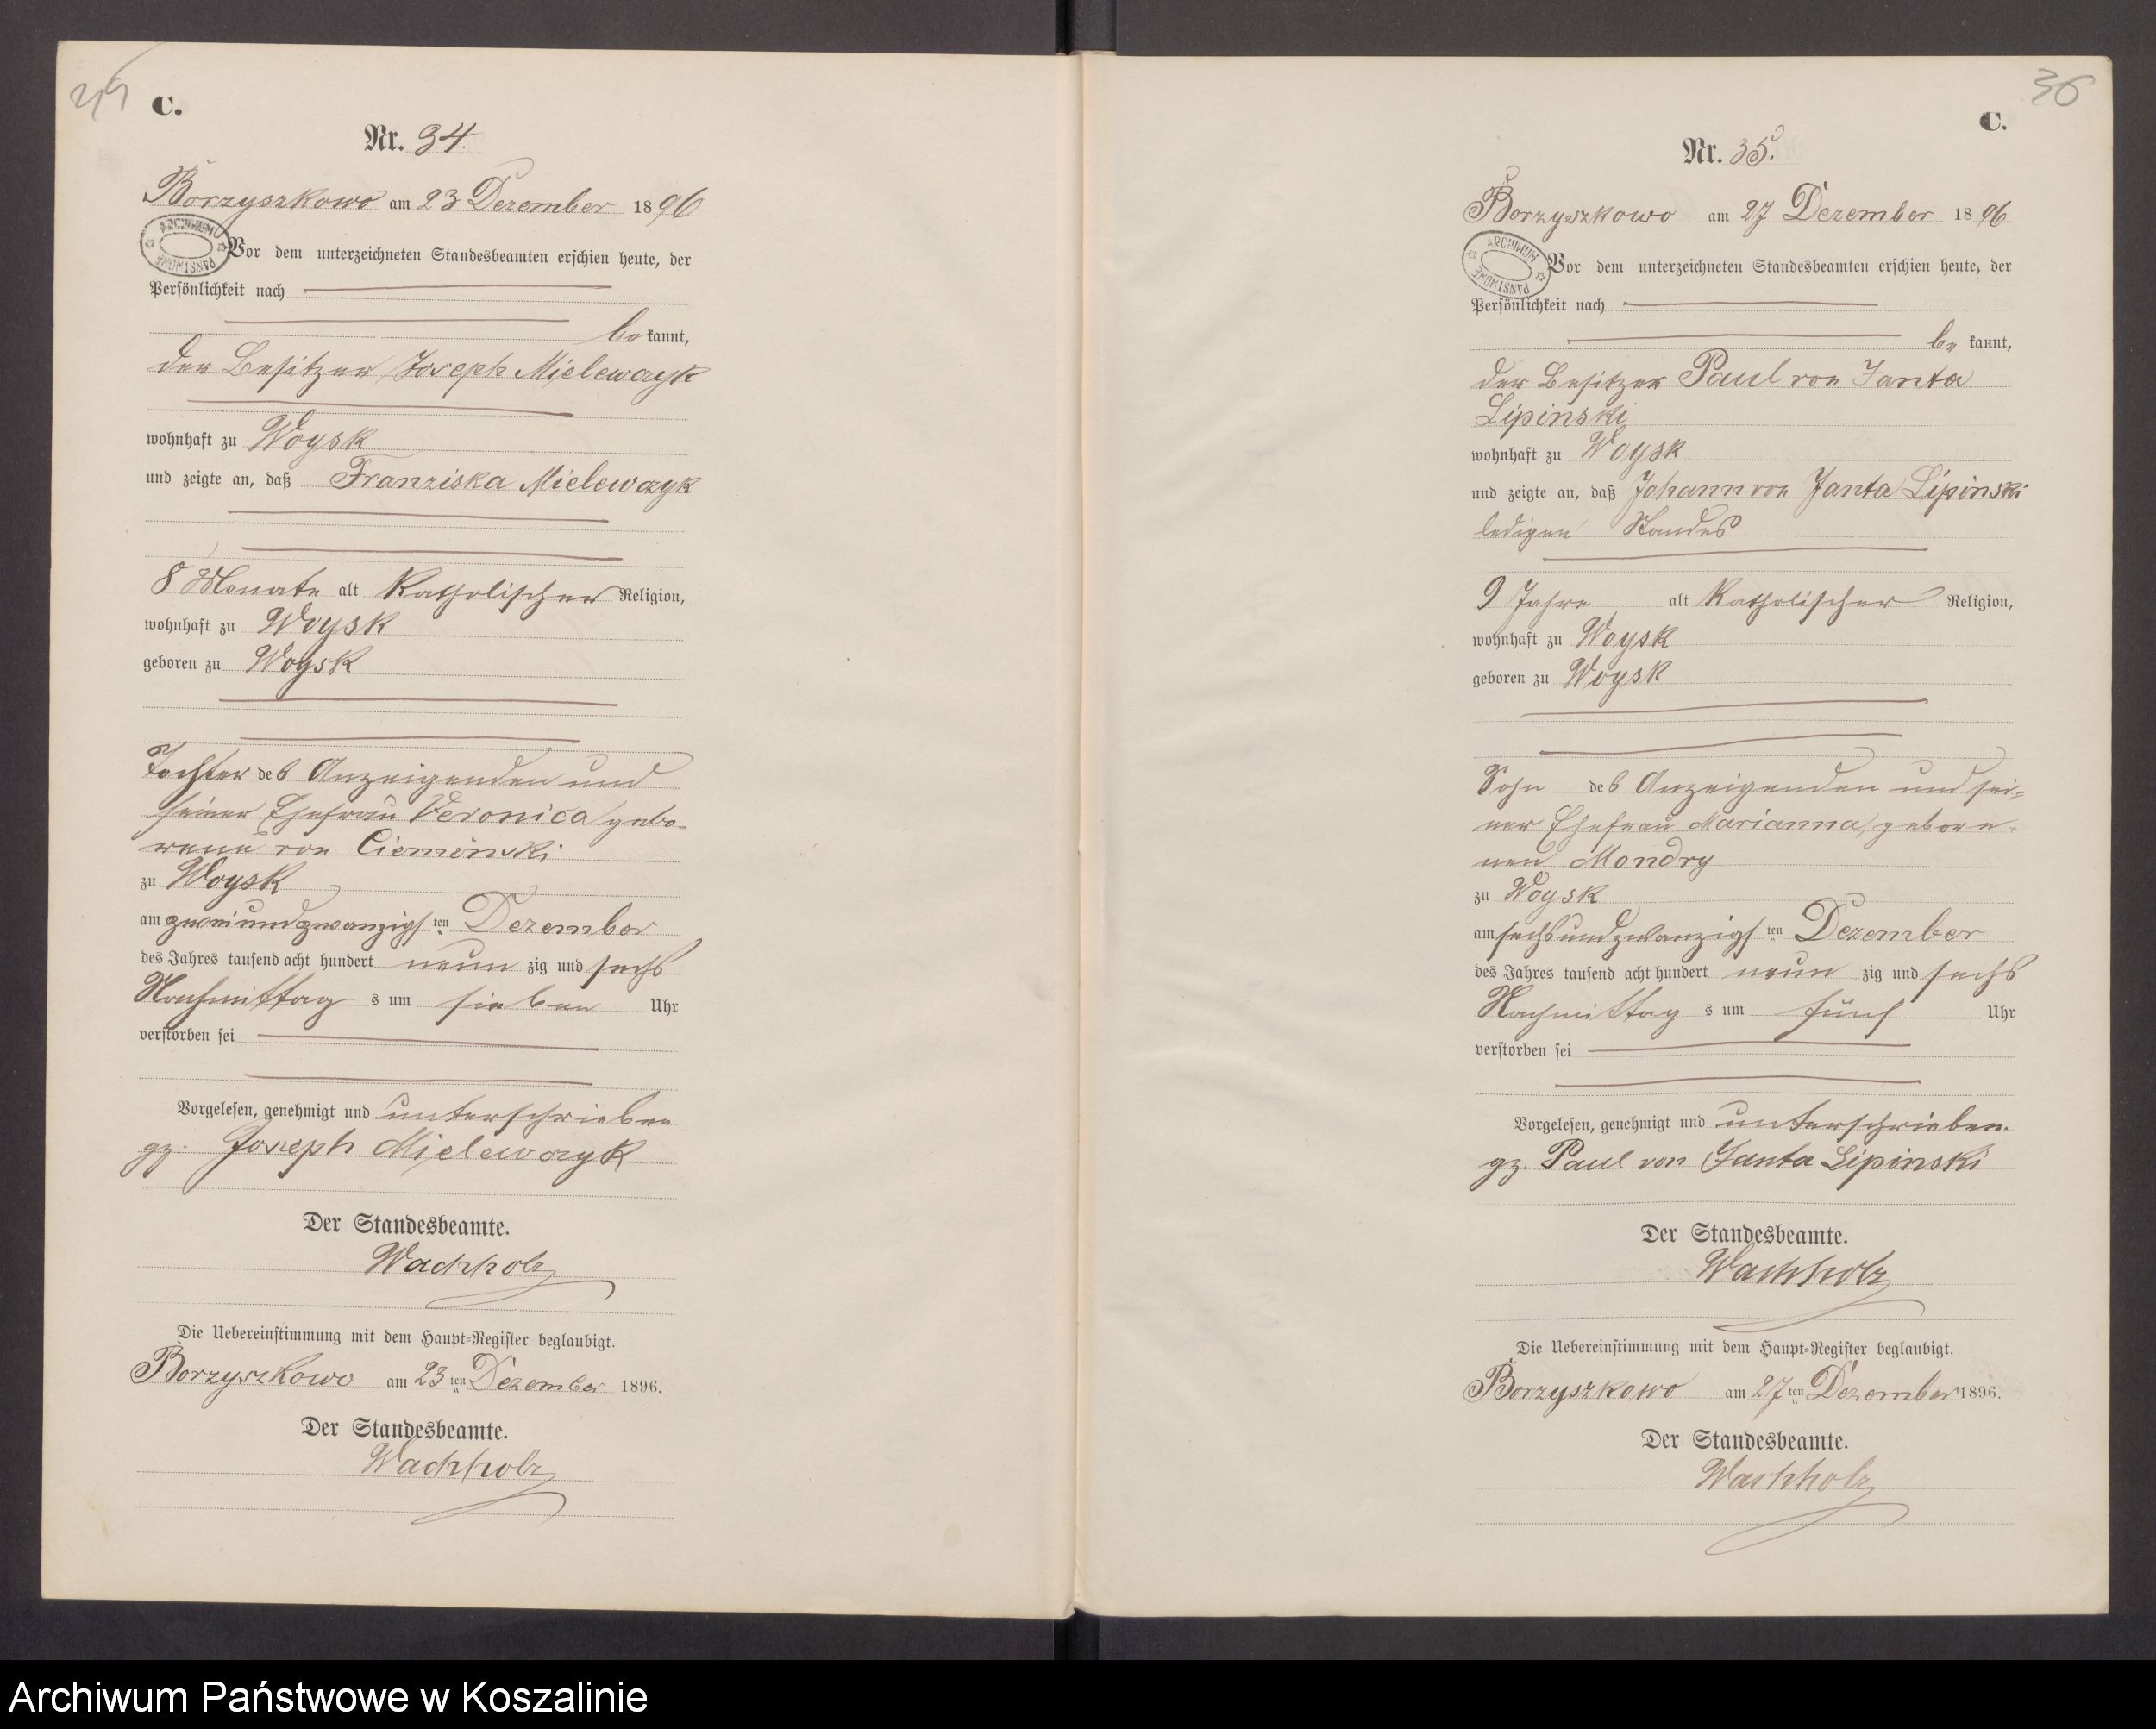 C.
Nr. 34.
Borzyszkowo am 23 Dezember 1896
ARCHIWUM PAŃSTWOWE
Vor dem unterzeichneten Standesbeamten erschien heute, der
Persönlichkeit nach
bekannt,
der Besitzer Joseph Mielewczyk
wohnhaft zu Woysk
und zeigte an, daß Franziska Mielewczyk
8 Monate alt Katholischer Religion,
wohnhaft zu Woysk
geboren zu Woysk
Tochter des Anzeigenden und
seiner Ehefrau Veronica gebo-
rene von Cieminski
zu Woysk
am zweiundzwanzigsten Dezember
des Jahres tausend acht hundert neunzig und sechs
Nachmittags um sieben Uhr
verstorben sei
Vorgelesen, genehmigt und unterschrieben
gz. Joseph Mielewczyk
Der Standesbeamte.
Wachholz
Die Uebereinstimmung mit dem Haupt-Register beglaubigt.
Borzyszkowo am 23ten Dezember 1896.
Der Standesbeamte.
Wachholz
36
C.
Nr. 35.
Borzyszkowo am 27 Dezember 1896
ARCHIWUM PAŃSTWOWE
Vor dem unterzeichneten Standesbeamten erschien heute, der
Persönlichkeit nach
bekannt,
der Besitzer Paul von Janta
Lipinski
wohnhaft zu Woysk
und zeigte an, daß Johann von Janta Lipinski
ledigen Standes
9 Jahre alt Katholischer Religion,
wohnhaft zu Woysk
geboren zu Woysk
Sohn des Anzeigenden und sei-
ner Ehefrau Marianna, gebore-
nen Mondry
zu Woysk
am sechsundzwanzigsten Dezember
des Jahres tausend acht hundert neunzig und sechs
Nachmittags um fünf Uhr
verstorben sei
Vorgelesen, genehmigt und unterschrieben.
gz. Paul von Janta Lipinski
Der Standesbeamte.
Wachholz
Die Uebereinstimmung mit dem Haupt-Register beglaubigt.
Borzyszkowo am 27ten Dezember 1896.
Der Standesbeamte.
Wachholz
Archiwum Państwowe w Koszalinie